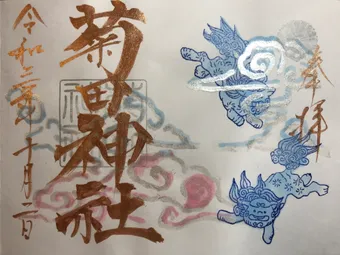 奉拝
菊田神社
令和二年十一月二日